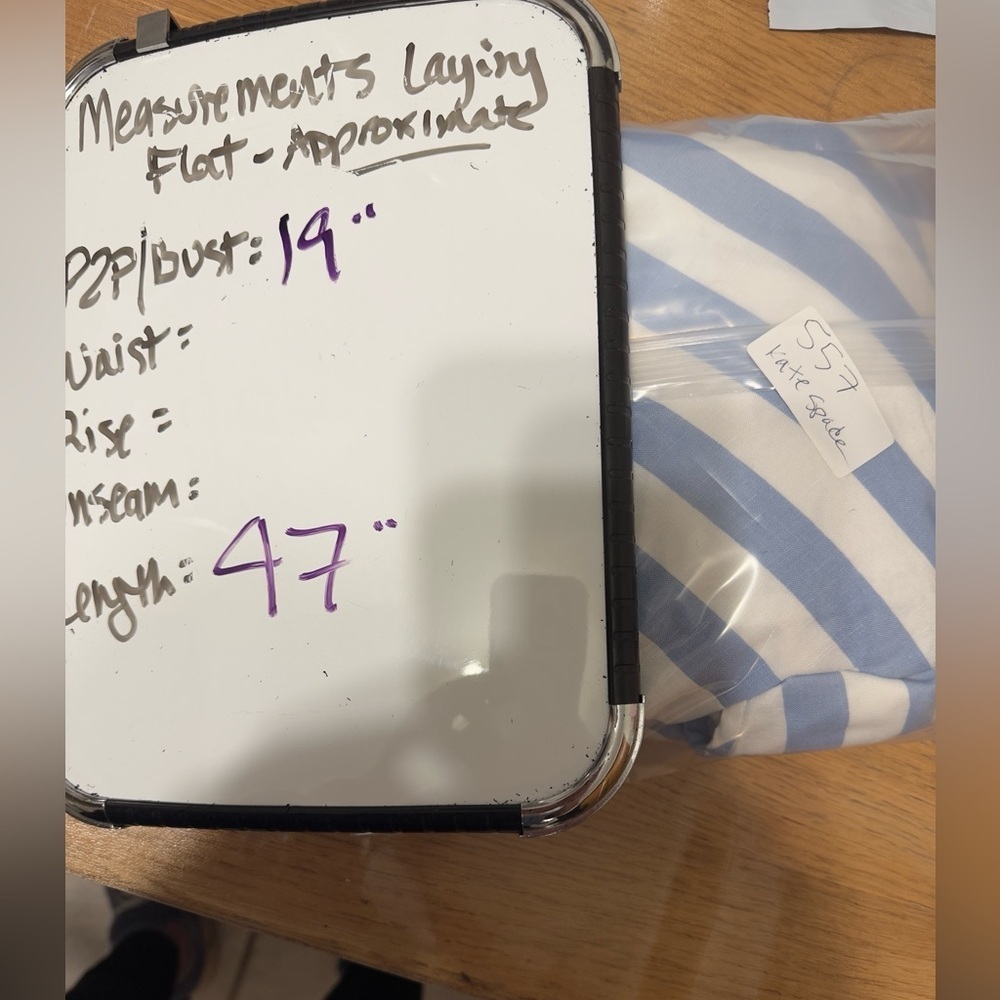 Measurements Laying
Flat - Approximate
P2P/Bust: 19"
Waist:
Rise:
Inseam:
Length: 47"
557
Kate Spade